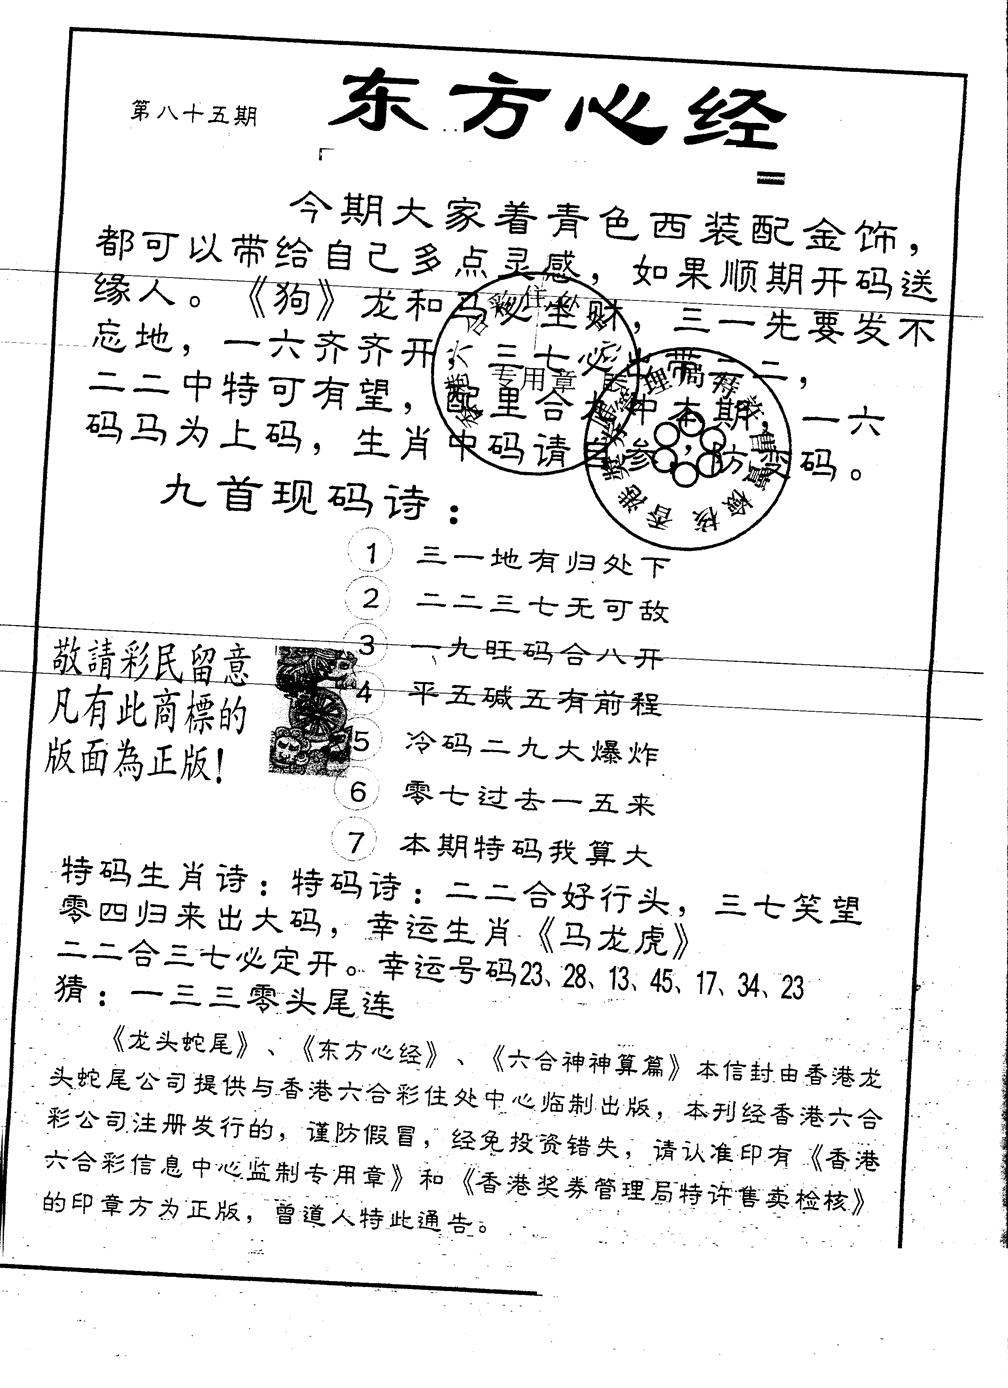 第八十五期
东方心经
今期大家着青色西装配金饰，
都可以带给自己多点灵感，如果顺期开码送
缘人。《狗》龙和马必生财，三一先要发不
忘地，一六齐齐开，三七必出带二二，
二二中特可有望，配里合 冲本期，一六
码马为上码，生肖中码请 参，防变码。
专用章
九首现码诗：
1 三一地有归处下
2 二二三七无可敌
3 一九旺码合八开
4 平五碱五有前程
5 冷码二九大爆炸
6 零七过去一五来
7 本期特码我算大
敬請彩民留意
凡有此商標的
版面為正版！
特码生肖诗：特码诗：二二合好行头，三七笑望
零四归来出大码，幸运生肖《马龙虎》
二二合三七必定开。幸运号码23、28、13、45、17、34、23
猜：一三三零头尾连
《龙头蛇尾》、《东方心经》、《六合神神算篇》本信封由香港龙
头蛇尾公司提供与香港六合彩住处中心临制出版，本刊经香港六合
彩公司注册发行的，谨防假冒，经免投资错失，请认准印有《香港
六合彩信息中心监制专用章》和《香港奖券管理局特许售卖检核》
的印章方为正版，曾道人特此通告。